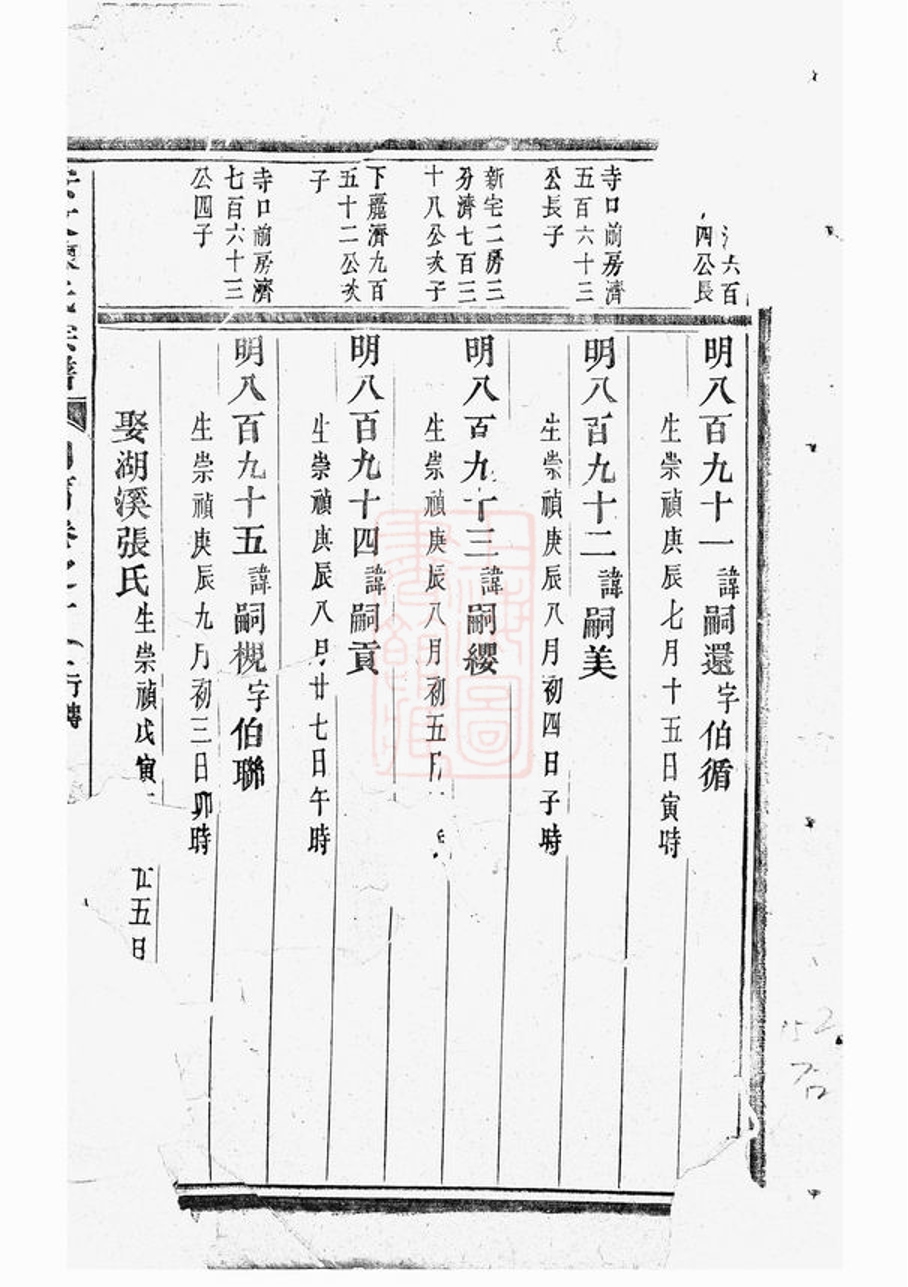 六百
四公長
明八百九十一 諱嗣還字伯循
生崇禎庚辰七月十五日寅時
寺口前房濟
五百六十三
公長子
明八百九十二 諱嗣美
生崇禎庚辰八月初四日子時
新宅二房三
分濟七百三
十八公次子
明八百九十三 諱嗣纓
生崇禎庚辰八月初五
下麗濟九百
五十二公次
子
明八百九十四 諱嗣貢
生崇禎庚辰八月廿七日午時
寺口前房濟
七百六十三
公四子
明八百九十五 諱嗣槻字伯聯
生崇禎庚辰九月初三日卯時
娶湖溪張氏 生崇禎戊寅
廿五日
行傳